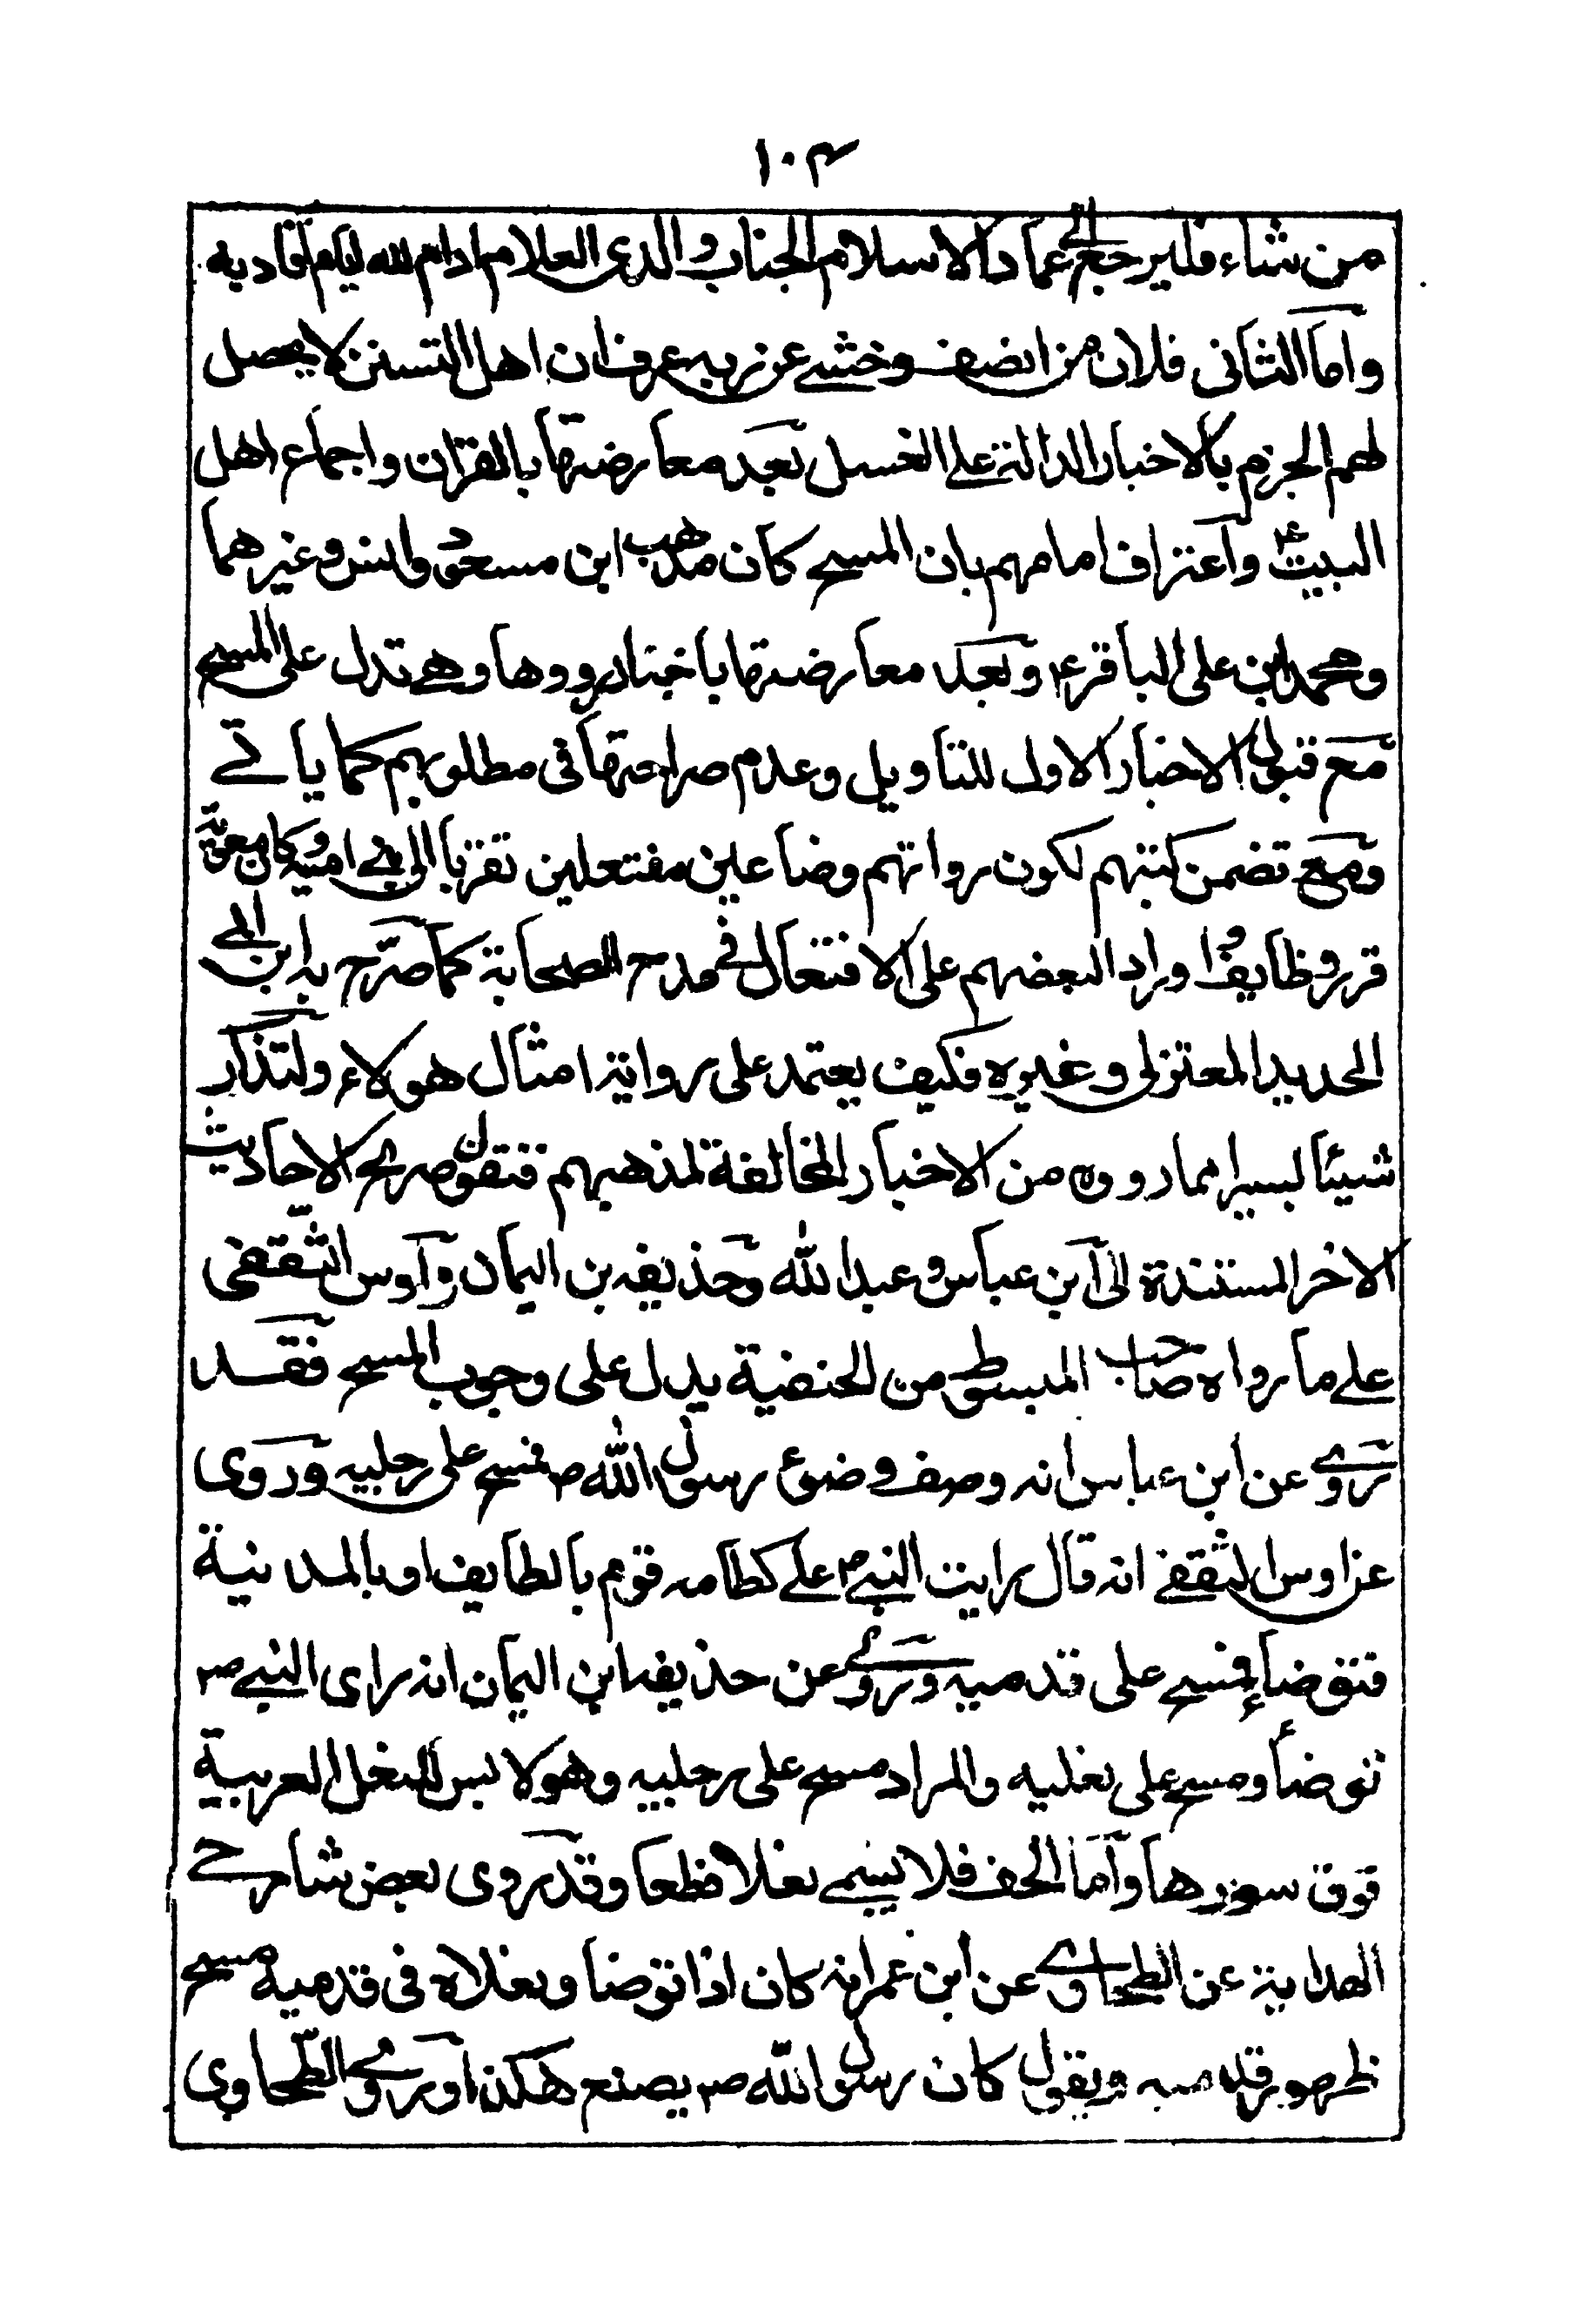 ۱۰۴
من شاء فليرجع الى عماد الاسلام لجناب والدى العلام ادام الله ايام افادته
واما الثانى فلان من انصف وخشى عن ربه عرف ان اهل التسنن لا يحصل
لهم الجزم بالاخبار الدالة على الغسل بعد معارضتها بالقرآن واجماع اهل
البيت ع واعتراف امامهم بان المسح كان مذهب ابن مسعود وانس وغيرهما
ومحمد ابن على الباقر ع وبعد معارضتها باخبار رووها وهى تدل على المسح
مع قبول الاخبار الاول للتاويل وعدم صراحتها فى مطلوبهم كما ياتى
ومع تضمن كتبهم لكون رواتهم وضاعين مفتعلين تقربا الى بنى امية وكان معوية
قرر وظايفا وادرارا لبعضهم على الافتعال فى مدح الصحابة كما صرّح به ابن ابى
الحديد المعتزلى وغيره فكيف يعتمد على رواية امثال هولاء ولنذكر
شيئا يسيرا مما رووه من الاخبار المخالفة لمذهبهم فنقول صريح الاحاديث
الاخر المستندة الى ابن عباس وعبد الله وحذيفه بن اليمان وآوس الثّقفى
على ما رواه صاحب المبسوط من الحنفية يدل على وجوب المسح فقد
روى عن ابن عباس انه وصف وضوء رسول الله ص فمسح على رجليه وروى
عن اوس الثقفى انه قال رايت النبى ص على كظامه قوم بالطايف او بالمدينة
فتوضأ فمسح على قدميه وروى عن حذيفه ابن اليمان انه راى النبى ص
توضأ ومسح على نعليه والمراد مسح على رجليه وهو لابس للنعل العربية
فوق سيورها وآما الخف فلا يسمى نعلا قطعا وقد روى بعض شارحى
الهداية عن الطحاوى عن ابن عمر انه كان اذا توضا ونعلاه فى قدميه مسح
ظهور قدميه ويقول كان رسول الله ص يصنع هكذا وروى الطّحاوى